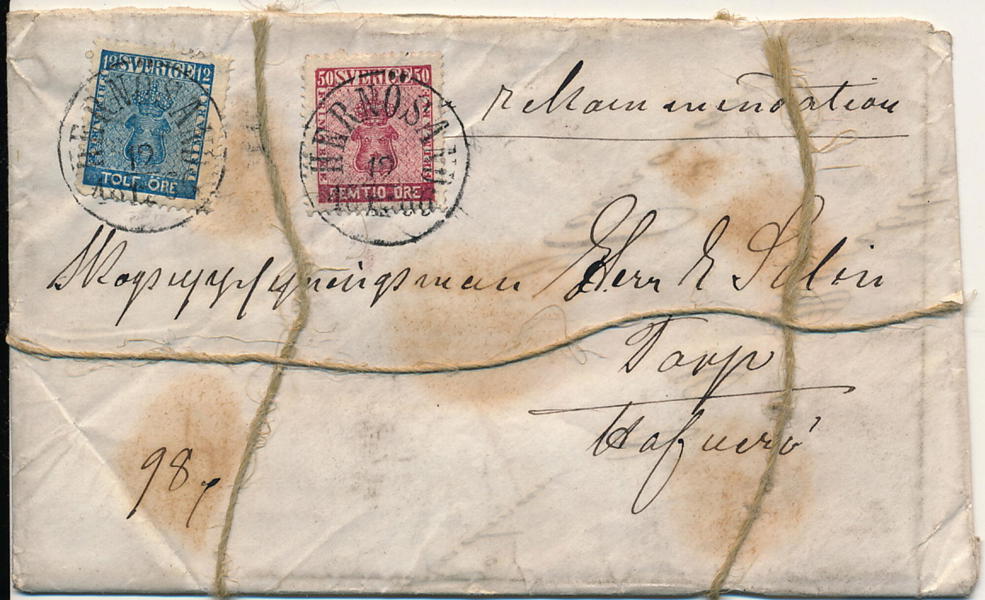 12 SVERIGE 12
TOLF ÖRE
50 SVERIGE 50
FEMTIO ÖRE
HERNÖSAND
12
HERNÖSAND
12
rekommendation
Herr E Solin
Torp
Hafverö
98